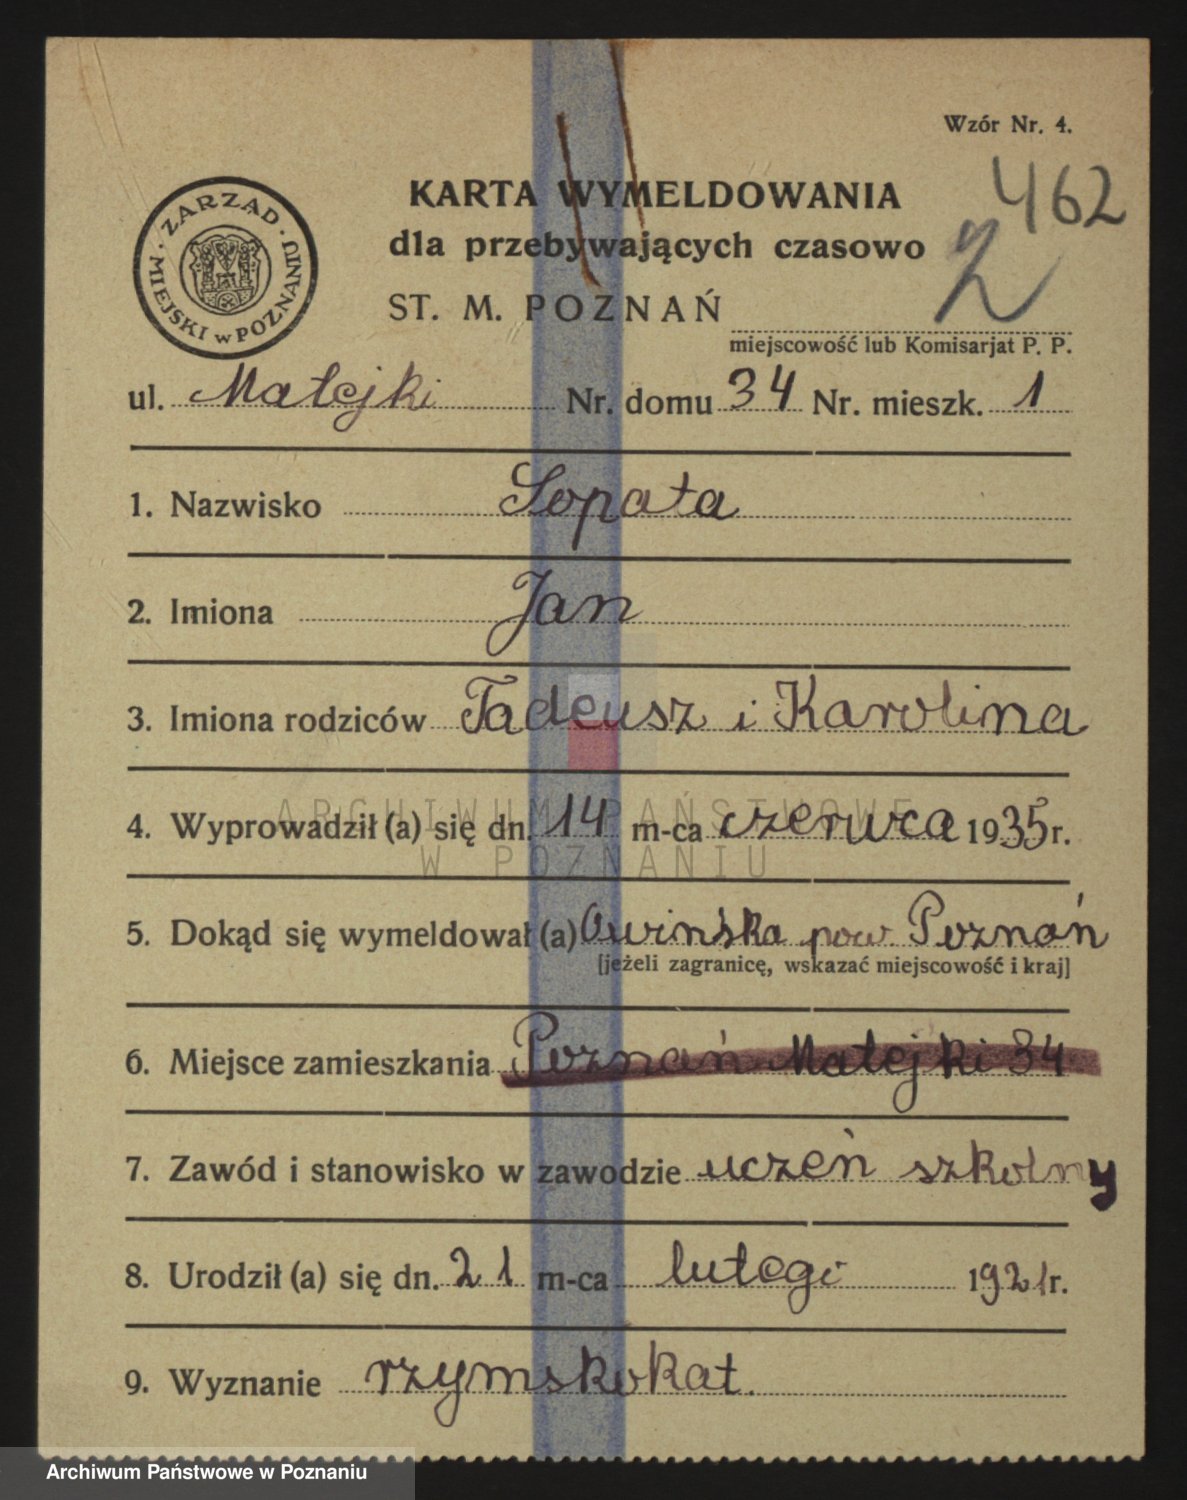 Wzór Nr. 4.
462
2
ZARZĄD MIEJSKI w POZNANIU
KARTA WYMELDOWANIA
dla przebywających czasowo
ST. M. POZNAŃ
miejscowość lub Komisarjat P. P.
ul. Matejki Nr. domu 34 Nr. mieszk. 1
1. Nazwisko Łopata
2. Imiona Jan
3. Imiona rodziców Tadeusz i Karolina
ARCHIWUM PAŃSTWOWE
4. Wyprowadził (a) się dn. 14 m-ca czerwca 1935 r.
W POZNANIU
5. Dokąd się wymeldował (a) Owińska pow. Poznań
[jeżeli zagranicę, wskazać miejscowość i kraj]
6. Miejsce zamieszkania Poznań Matejki 34
7. Zawód i stanowisko w zawodzie uczeń szkolny
8. Urodził (a) się dn. 21 m-ca lutego 1921 r.
9. Wyznanie rzymskokat.
Archiwum Państwowe w Poznaniu